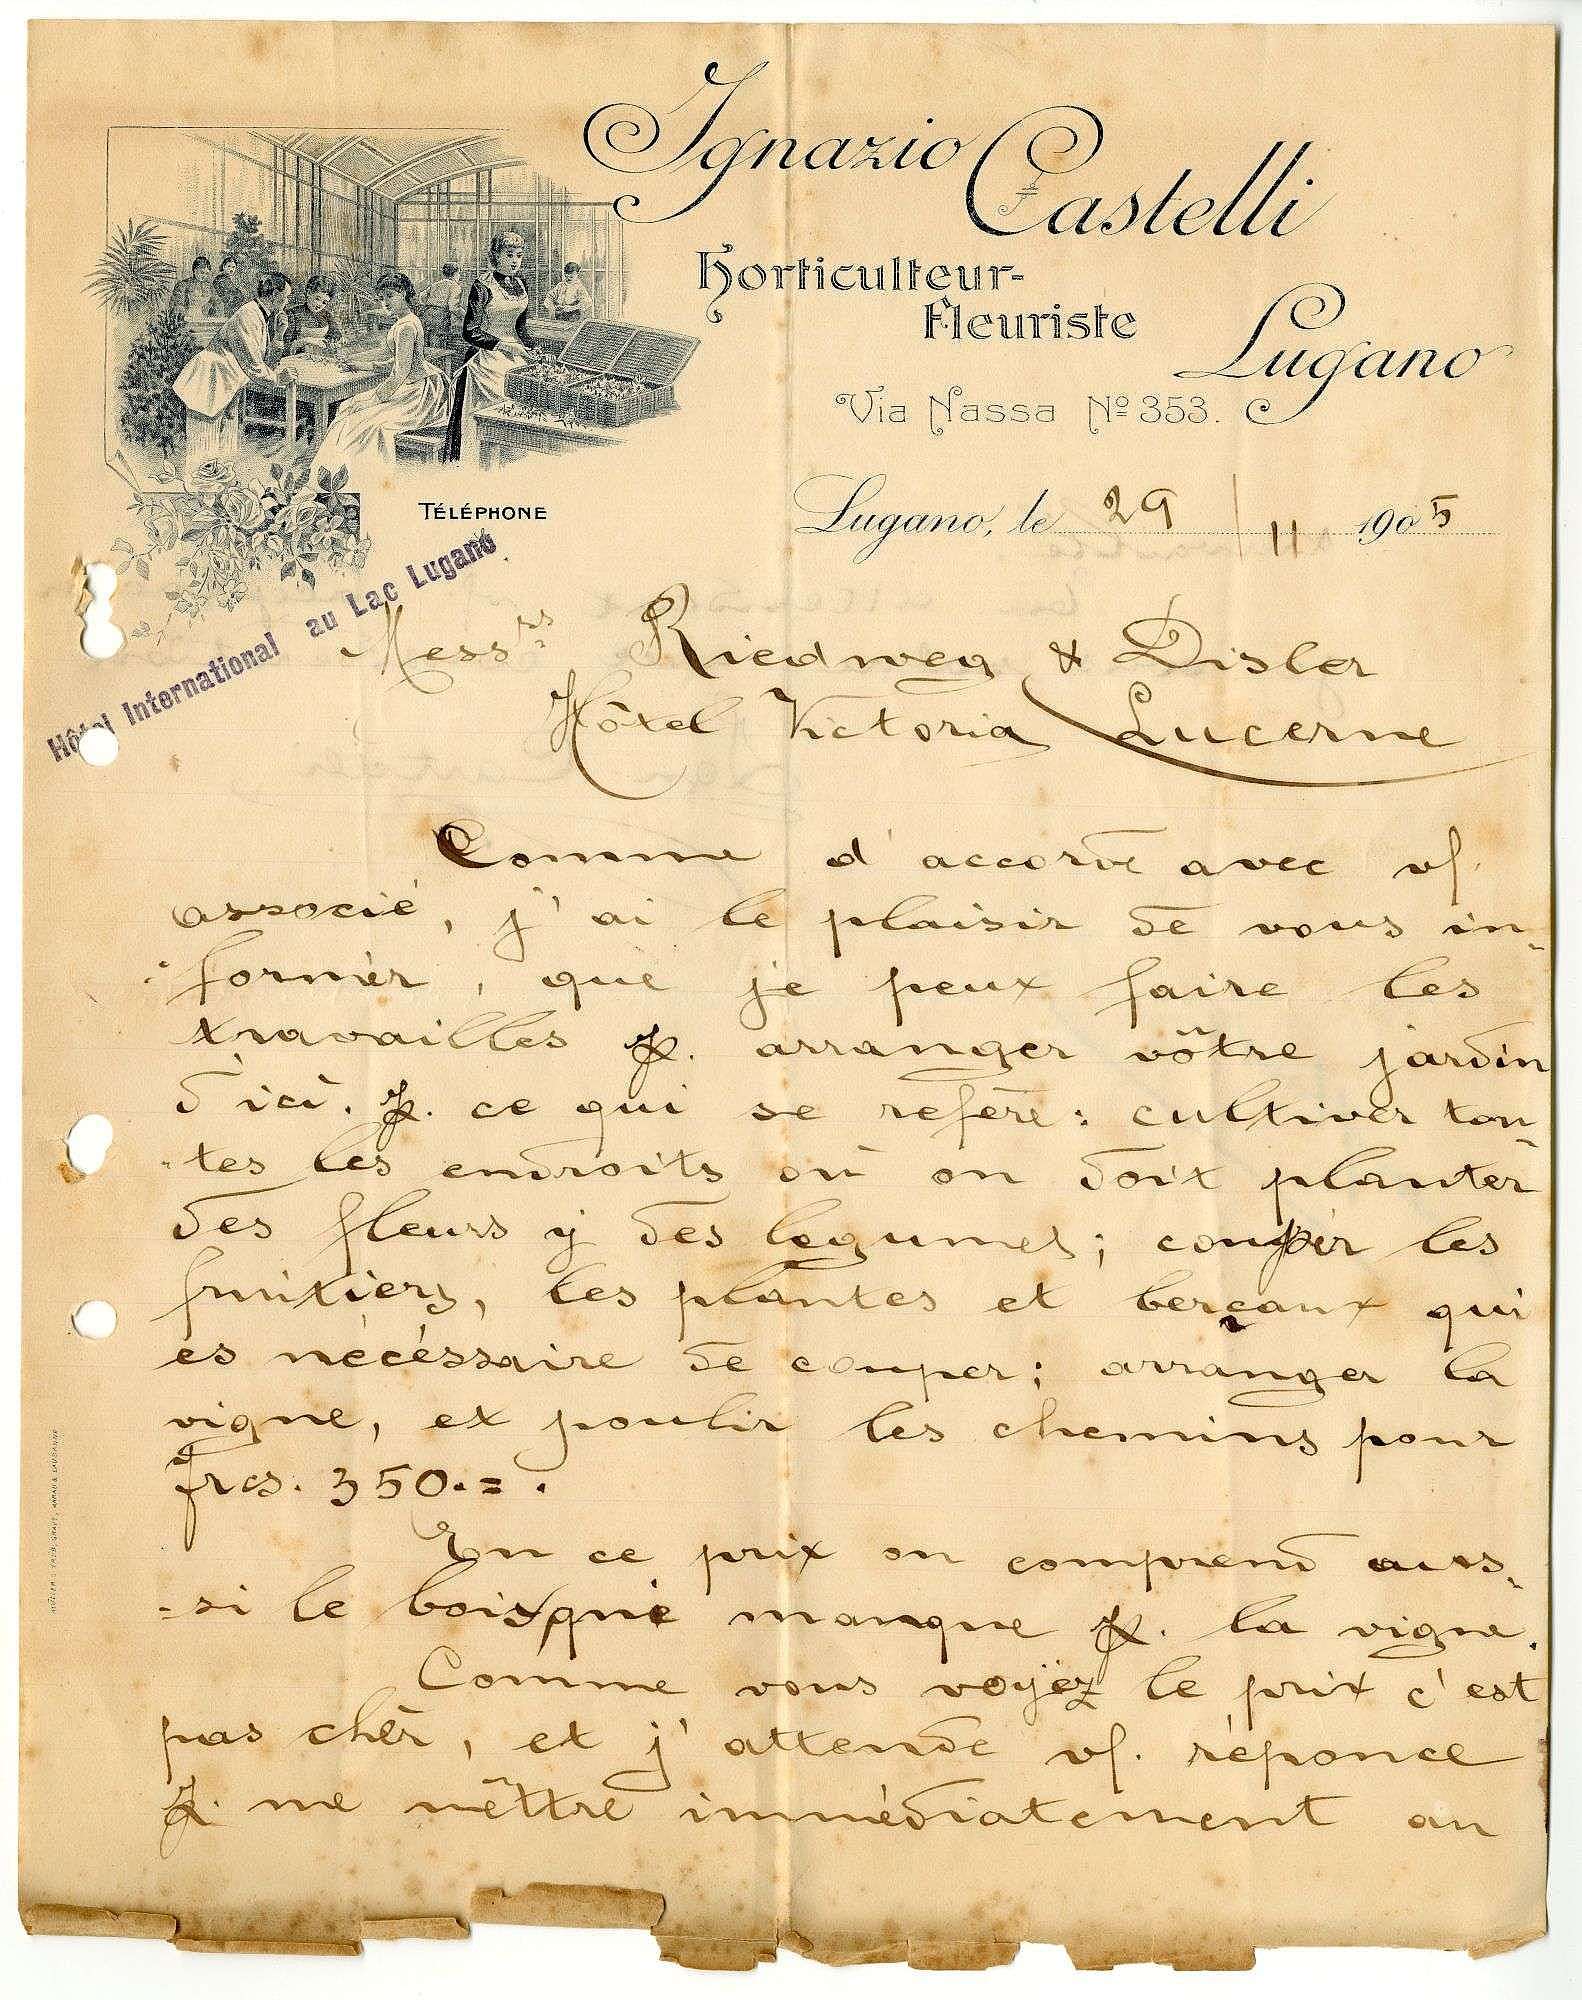 Ignazio Castelli
Horticulteur-
Fleuriste
Lugano
Via Nassa Nº 353.
TÉLÉPHONE
Hôtel International au Lac Lugano
Lugano, le 29/11 1905
Messrs Riedweg & Disler
Hôtel Victoria Lucerne
Comme d'accorde avec vf.
associé, j'ai le plaisir de vous in-
-formèr, que je peux faire les
travailles p. arranger vôtre jardin
d'ici. p. ce qui se refère: cultiver tou-
-tes les endroits où on doit plantèr
des fleurs y des legumes; coupèr les
fruitiers, les plantes et berçaux qui
es nècéssaire de couper; arranger la
vigne, et poulir les chemins pour
frcs. 350.=.
En ce prix on comprend aus-
=si le bois qui manque p. la vigne.
Comme vous voyèz le prix c'est
pas chêr, et j'attende vf. rèponce
p. me mêttre immèdiatement au